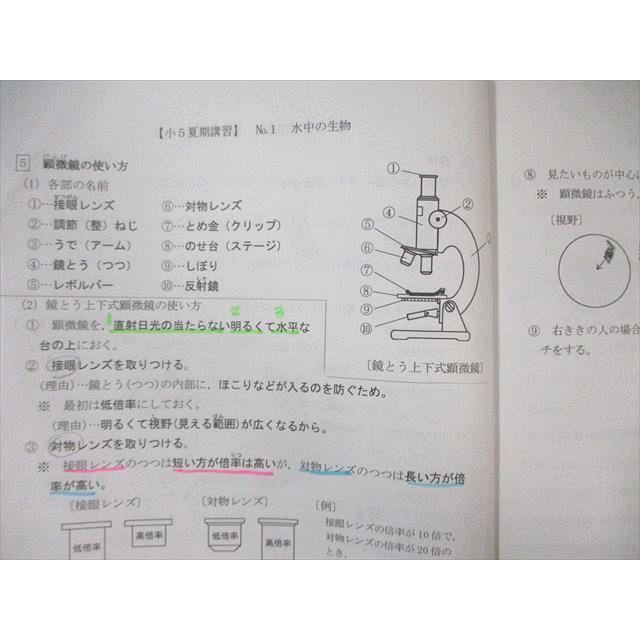 【小5夏期講習】 No.1 水中の生物
5 顕微鏡の使い方
(1) 各部の名前
①…接眼レンズ ⑥…対物レンズ
②…調節(整)ねじ ⑦…とめ金(クリップ)
③…うで(アーム) ⑧…のせ台(ステージ)
④…鏡とう(つつ) ⑨…しぼり
⑤…レボルバー ⑩…反射鏡
① ② ④ ⑤ ⑥ ⑦ ⑧ ⑨ ⑩
[鏡とう上下式顕微鏡]
(2) 鏡とう上下式顕微鏡の使い方
1 2 3
① 顕微鏡を,直射日光の当たらない明るくて水平な
台の上におく。
② 接眼レンズを取りつける。
(理由)…鏡とう(つつ)の内部に,ほこりなどが入るのを防ぐため。
※ 最初は低倍率にしておく。
(理由)…明るくて視野(見える範囲)が広くなるから。
③ 対物レンズを取りつける。
※ 接眼レンズのつつは短い方が倍率は高いが,対物レンズのつつは長い方が倍
率が高い。
[接眼レンズ] [対物レンズ] [例]
低倍率 高倍率 低倍率 高倍率
接眼レンズの倍率が10倍で,
対物レンズの倍率が20倍の
とき,
⑧ 見たいものが中心に
※ 顕微鏡はふつう,
[視野]
⑨ 右ききの人の場合
チをする。